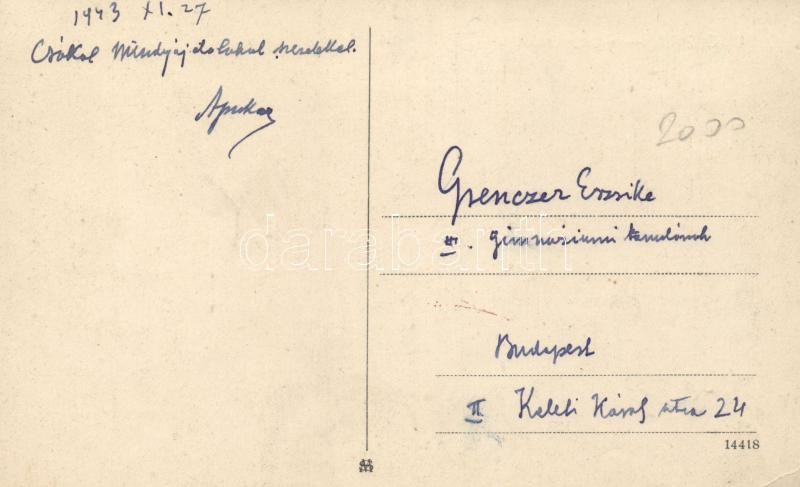 1943 XI. 27
Csókol szeretettel.
Apuka
2000
Grenczer Erzsike
gimnáziumi tanulónak
darabanth
Budapest
II Keleti Károly utca 24
14418